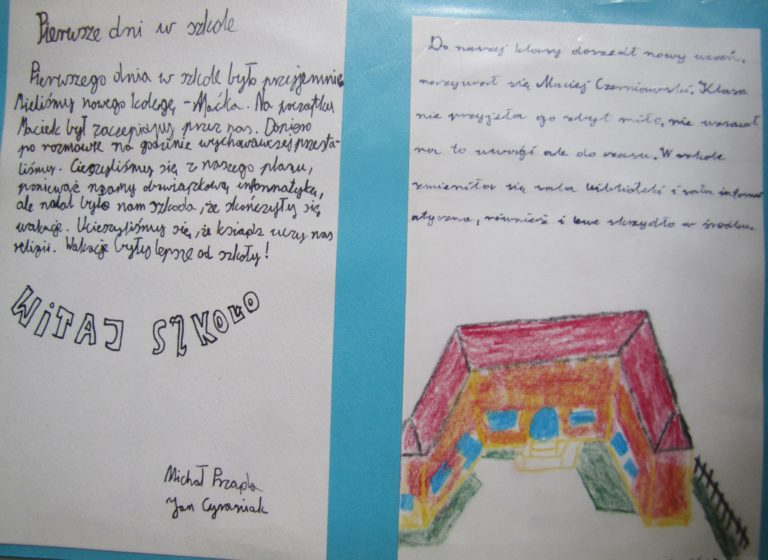 Pierwsze dni w szkole
Pierwszego dnia w szkole było przyjemnie.
Mieliśmy nowego kolegę - Maćka. Na początku
Maciek był zaczepiany przez nas. Dopiero
po rozmowie na godzinie wychowawczej przesta-
liśmy. Cieszyliśmy się z naszego planu,
ponieważ mamy dwiązkową informatykę,
ale nadal było nam szkoda, że skończyły się
wakacje. Ucieszyliśmy się, że ksiądz uczy nas
religii. Wakacje były lepsze od szkoły!
WITAJ SZKOŁO
Michał
Jan
Do naszej klasy doszedł nowy uczeń.
nazywał się Maciej Czerniawski. Klasa
nie przyjęła go zbyt miło, nie zwracał
na to uwagi ale do czasu. W szkole
zmieniła się sala biblioteki i sala inform
atyczna, również i lewe skrzydło w środku.